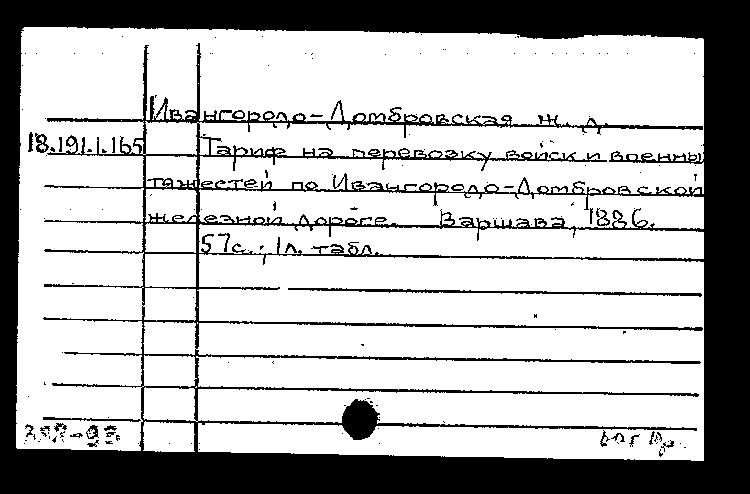 Ивангородо-Домбровская ж. д.
18.191.1.165 Тариф на перевозку войск и военны
тяжестей по Ивангородо-Домбровской
железной дороге. Варшава, 1886.
57с.; 1л. табл.